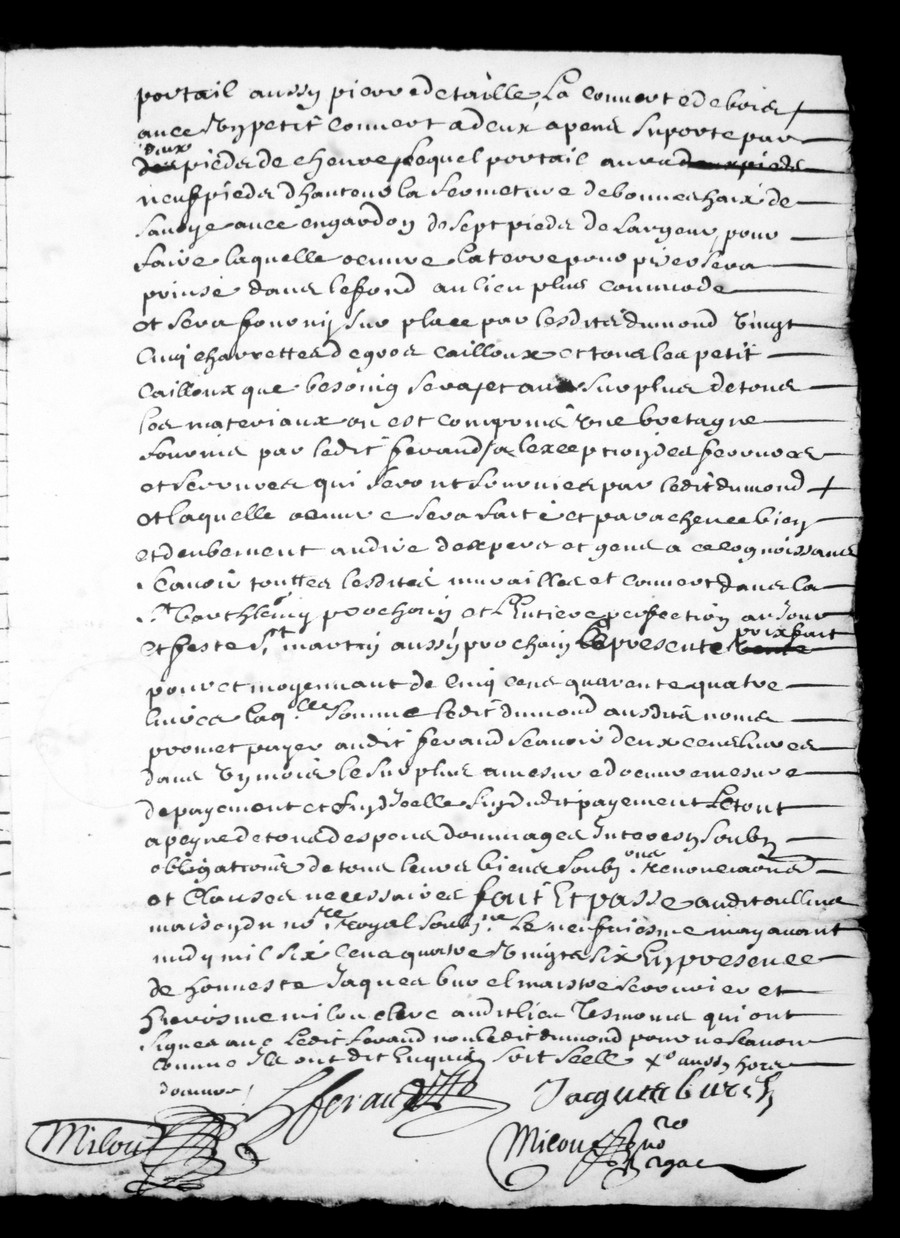 portail aussy pierre de taille, La Couvert de bois
avec Un petit Couvert a deux apens suporte par
deux
des pieds de chevre, lequel portail aura deux pieds
neuf pieds d'hauteur la fermeture de bonne haix de
Savoye avec engardon de sept pieds de Largeur, pour
faire laquelle oeuvre la terre pour piser sera
prinse dans le fond au lieu plus commode
et sera fourny sur place par lesdits dumond Vingt
Cinq charrettes de gros cailloux et tous les petit
Cailloux que besoing sera, et au surplus de tous
les materiaux on est comprins Une bretagne
fournis par ledit ferand, a lexception des ferrures
et serrures qui seront fournies par ledit dumond
Et laquelle oeuvre sera faite et parachevee bien
et deubement au dire dexpers et gens a ce cognoissans
Scavoir touttes lesdites murailles et Couvert dans la
St barthlemy prochain et LEntiere perfection au Jour
prixfait
et feste St martin aussy prochain Le presente vente
pour et moyennant de Cinq cens quarente quatre
livres laqlle Somme ledit dumond ausdits noms
promet payer audit ferand scavoir deux cens livres
dans Un mois le surplus a mesure doeuvre mesure
de payement et fin dicelle fin dudit payement Le tout
a peyne de tous despens dommages Interestz soubz
obligations de tous leurs biens soubzons renonciaons
et Clauses necessaires fait Et passe audit oullins
maison du nore Royal soubzne Le neufiesme may avant
midy mil six Cens quatre Vingts six En presence
de honneste Jaques bur el maistre serrurier et
hierosme milon clerc audit lieu Tesmoins qui ont
signes avec Ledit ferand non ledit dumond pour ne scavoir
comme Ils ont dit Enquis soit scelle Xo aussy hors
doeuvre
fferand
Jacque bur el
Milon
Milon nore
royal